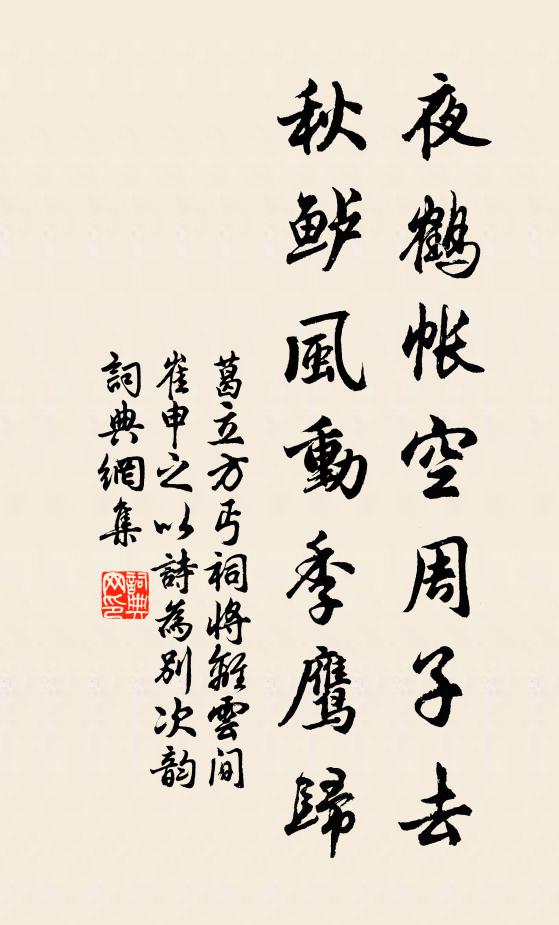 夜鶴帐空周子去
秋鲈風動季鹰歸
葛立方丐祠將離雲间
崔申之以詩為别次韵
詞典網集
詞典
网印